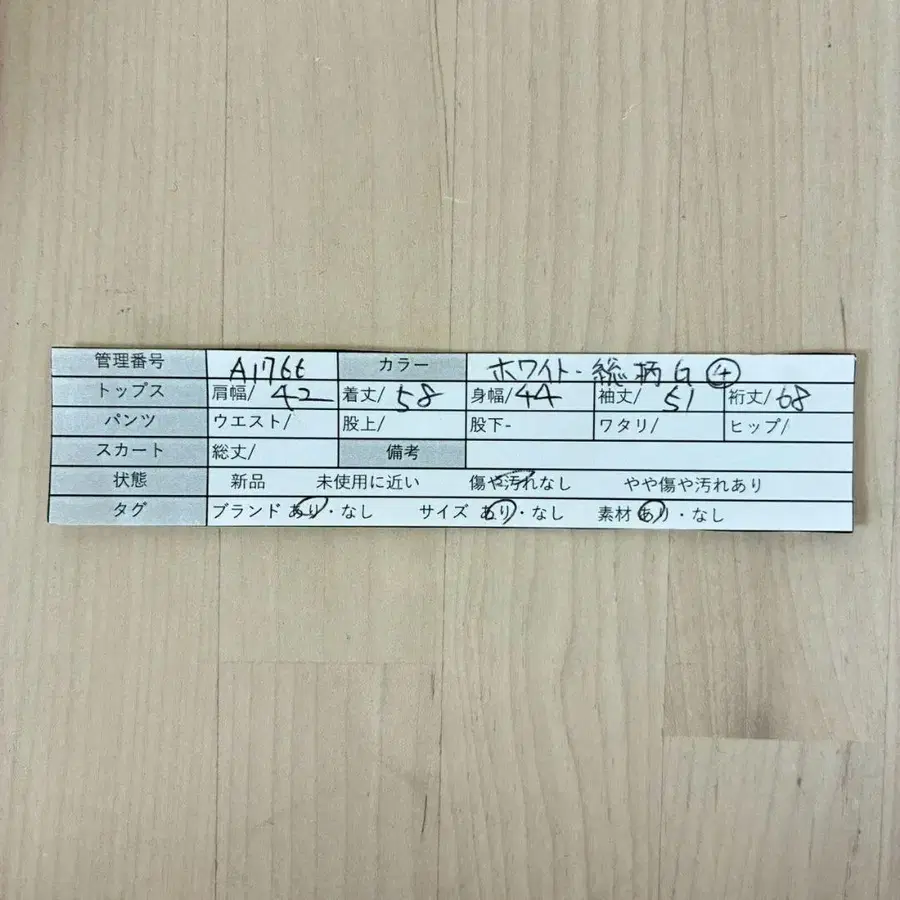 管理番号 A176t カラー ホワイト・総柄G ④
トップス 肩幅/ 42 着丈/ 58 身幅/ 44 袖丈/ 51 裄丈/ 68
パンツ ウエスト/ 股上/ 股下- ワタリ/ ヒップ/
スカート 総丈/ 備考
状態 新品 未使用に近い 傷や汚れなし やや傷や汚れあり
タグ ブランド あり・なし サイズ あり・なし 素材 あり・なし